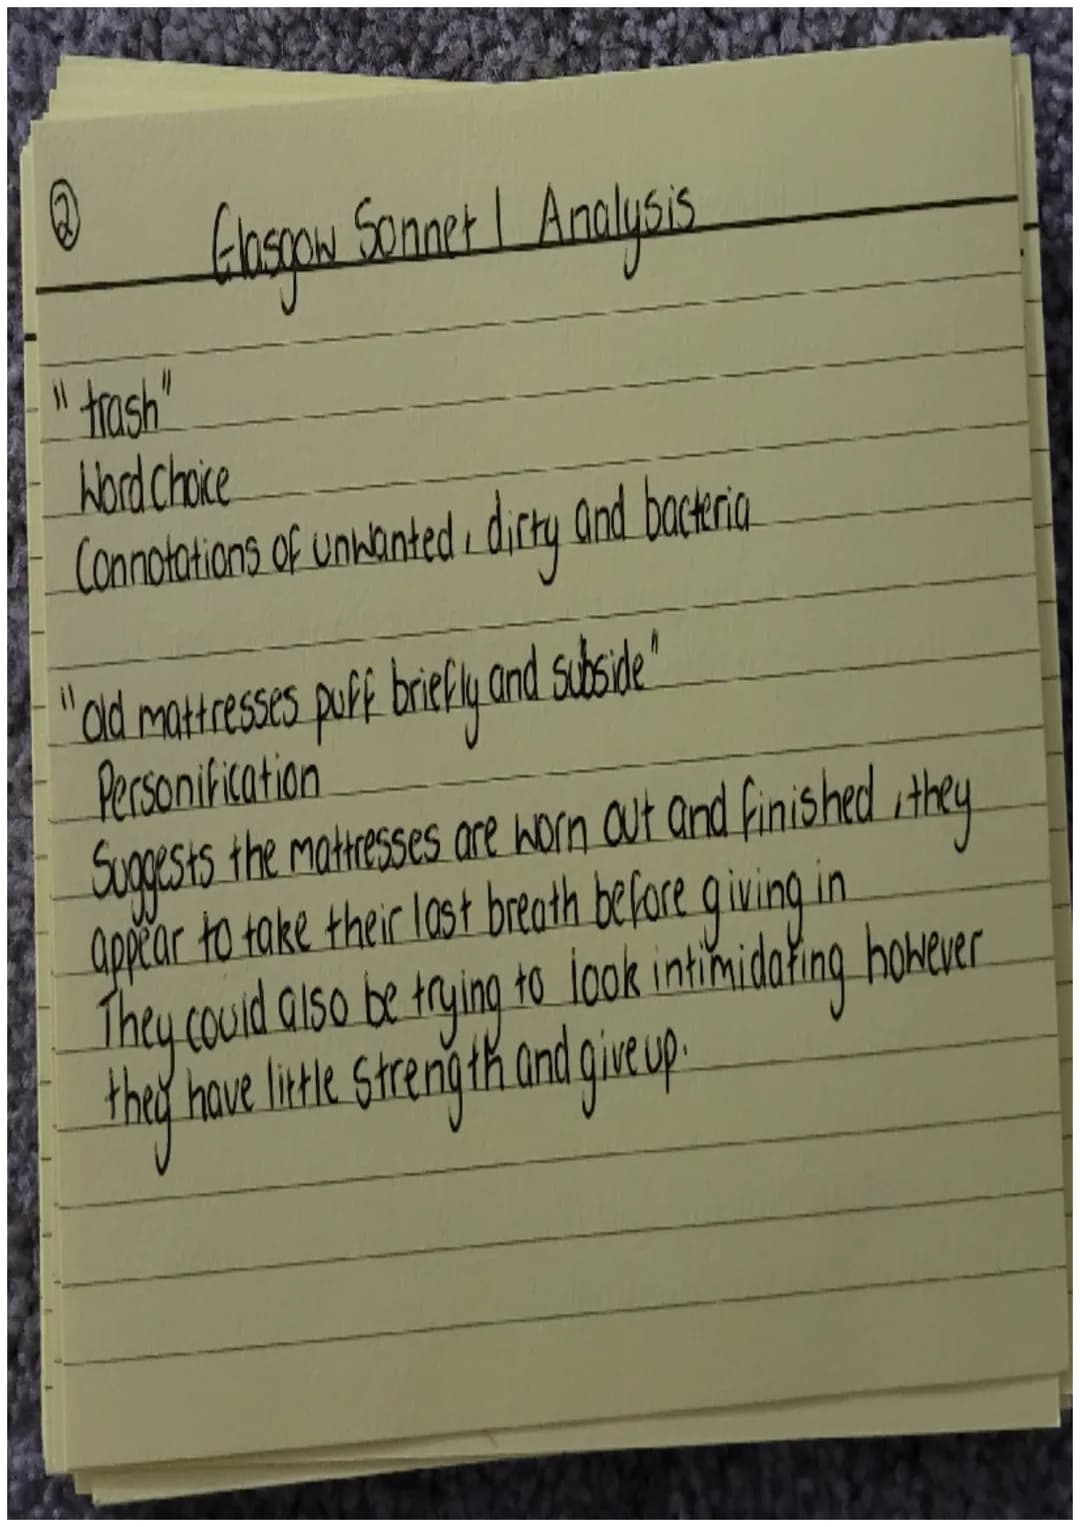 ②
Glasgow Sonnet 1 Analysis
"trash"
Word Choice
Connotations of unwanted, dirty and bacteria
"old mattresses puff briefly and subside"
Personification
Suggests the mattresses are worn out and finished, they
appear to take their last breath before giving in
They could also be trying to look intimidating however
they have little strength and give up.